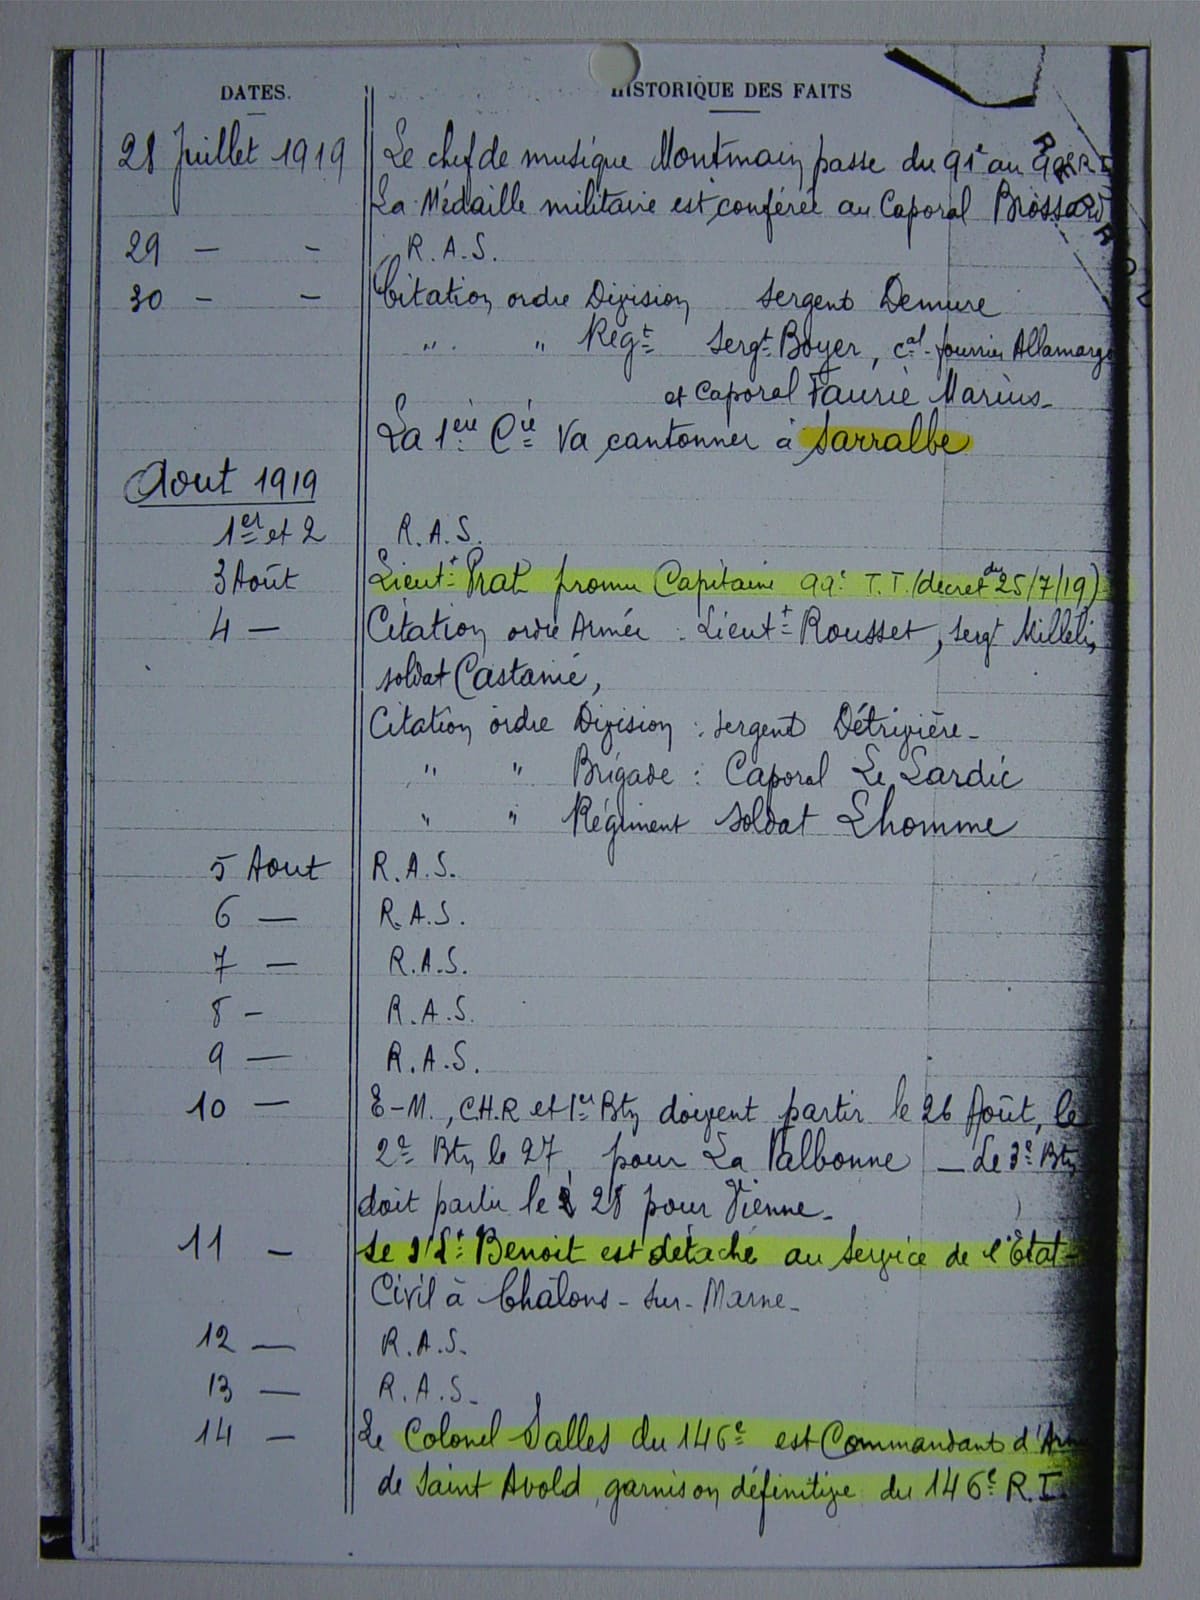 DATES. HISTORIQUE DES FAITS
28 Juillet 1919 Le chef de musique Montmain passe du 91e au 99e R.I
La Médaille militaire est conférée au Caporal Brossard
29 — — R.A.S.
30 — — Citation ordre Division sergent Demure
" " Régt Sergt Boyer, cal-fourrier Allamargo
et Caporal Faurie Marius_
La 1ère Cie va cantonner à Sarralbe
Aout 1919
1er et 2 R.A.S.
3 Août Lieut Prat promu Capitaine 99e T.T. (décret du 25/7/19)
4 — Citation ordre Armée : Lieut Rousset, sergt Milleli,
soldat Castanié,
Citation ordre Division : sergent Détrivière_
" " Brigade : Caporal Le Lardic
" " Régiment soldat Lhomme
5 Aout R.A.S.
6 — R.A.S.
7 — R.A.S.
8 — R.A.S.
9 — R.A.S.
10 — E-M., C.H.R et 1er Btn doivent partir le 26 Août, le
2e Btn le 27, pour La Valbonne _ Le 3e Btn
doit partir le 28 pour Vienne_
11 — Le s/Lt Benoit est détaché au Service de l'Etat-
Civil à Châlons-sur-Marne_
12 — R.A.S.
13 — R.A.S_
14 — Le Colonel Salles du 146e est Commandant d'Arm
de Saint Avold, garnison définitive du 146e R.I.